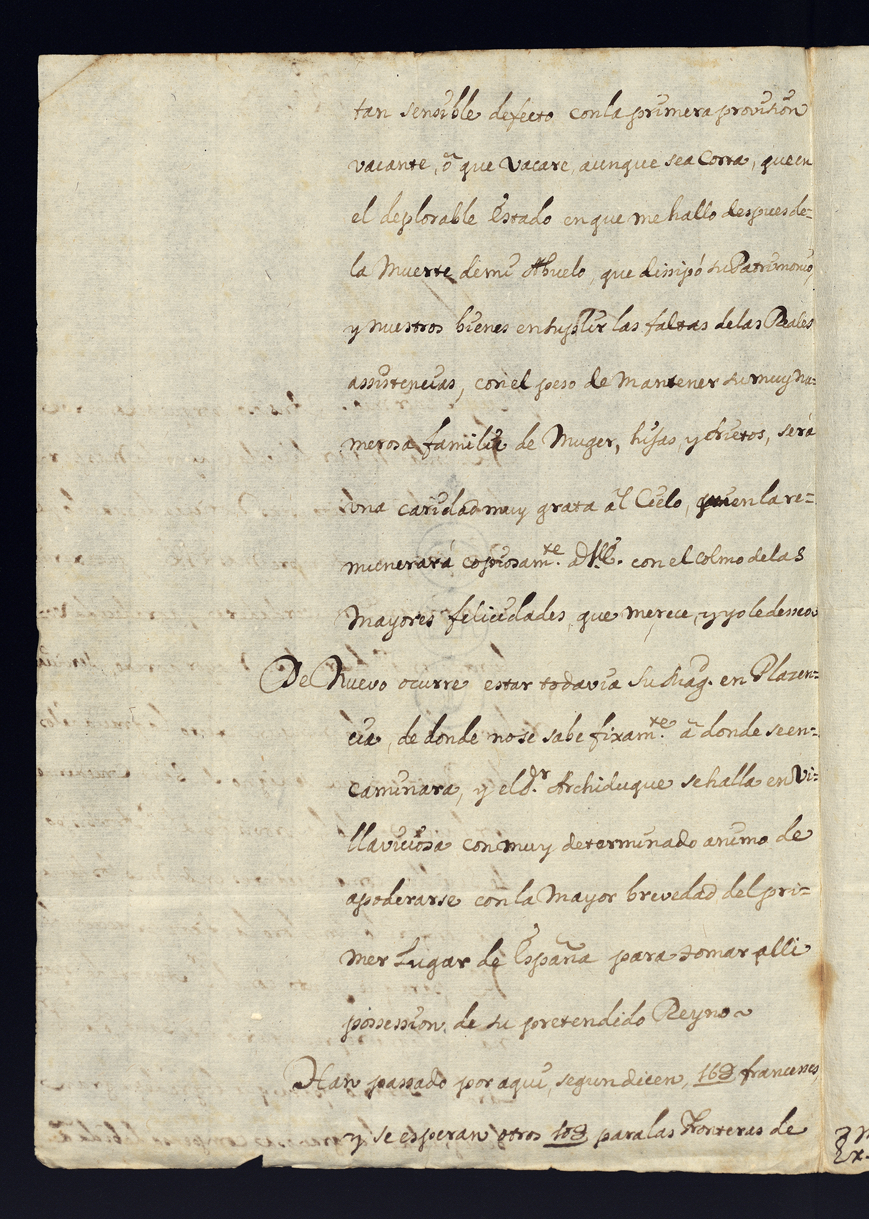 tan sensible defecto con la primera provision
vacante, ô que vacare, aunque sea corta, que en
el deplorable Estado en que me hallo despues de=
la Muerte de mi Abuelo, que dissipó su Patrimonio,
y nuestros bienes en suplir las faltas de las Reales
assistencias, con el peso de mantener su muy nu=
merosa familia de Muger, hijas, y Nietos, será
una caridad muy grata al Cielo, quien la re=
munerará copiosam.te à V.E. con el colmo de las
Mayores felicidades, que merece, y yo le desseo.
De Nuevo ocurre estar todavia Su Mag. en Plazen=
cia, de donde no se sabe fixam.te â donde se en=
caminara, y el S.r Archiduque se halla en Vi=
llaviciosa con muy determinado animo de
apoderarse con la Mayor brevedad del pri=
mer Lugar de España para tomar alli
possession de su pretendido Reyno~
Han passado por aqui, segun dicen, 16@ franceses,
y se esperan otros 10@ para las fronteras de